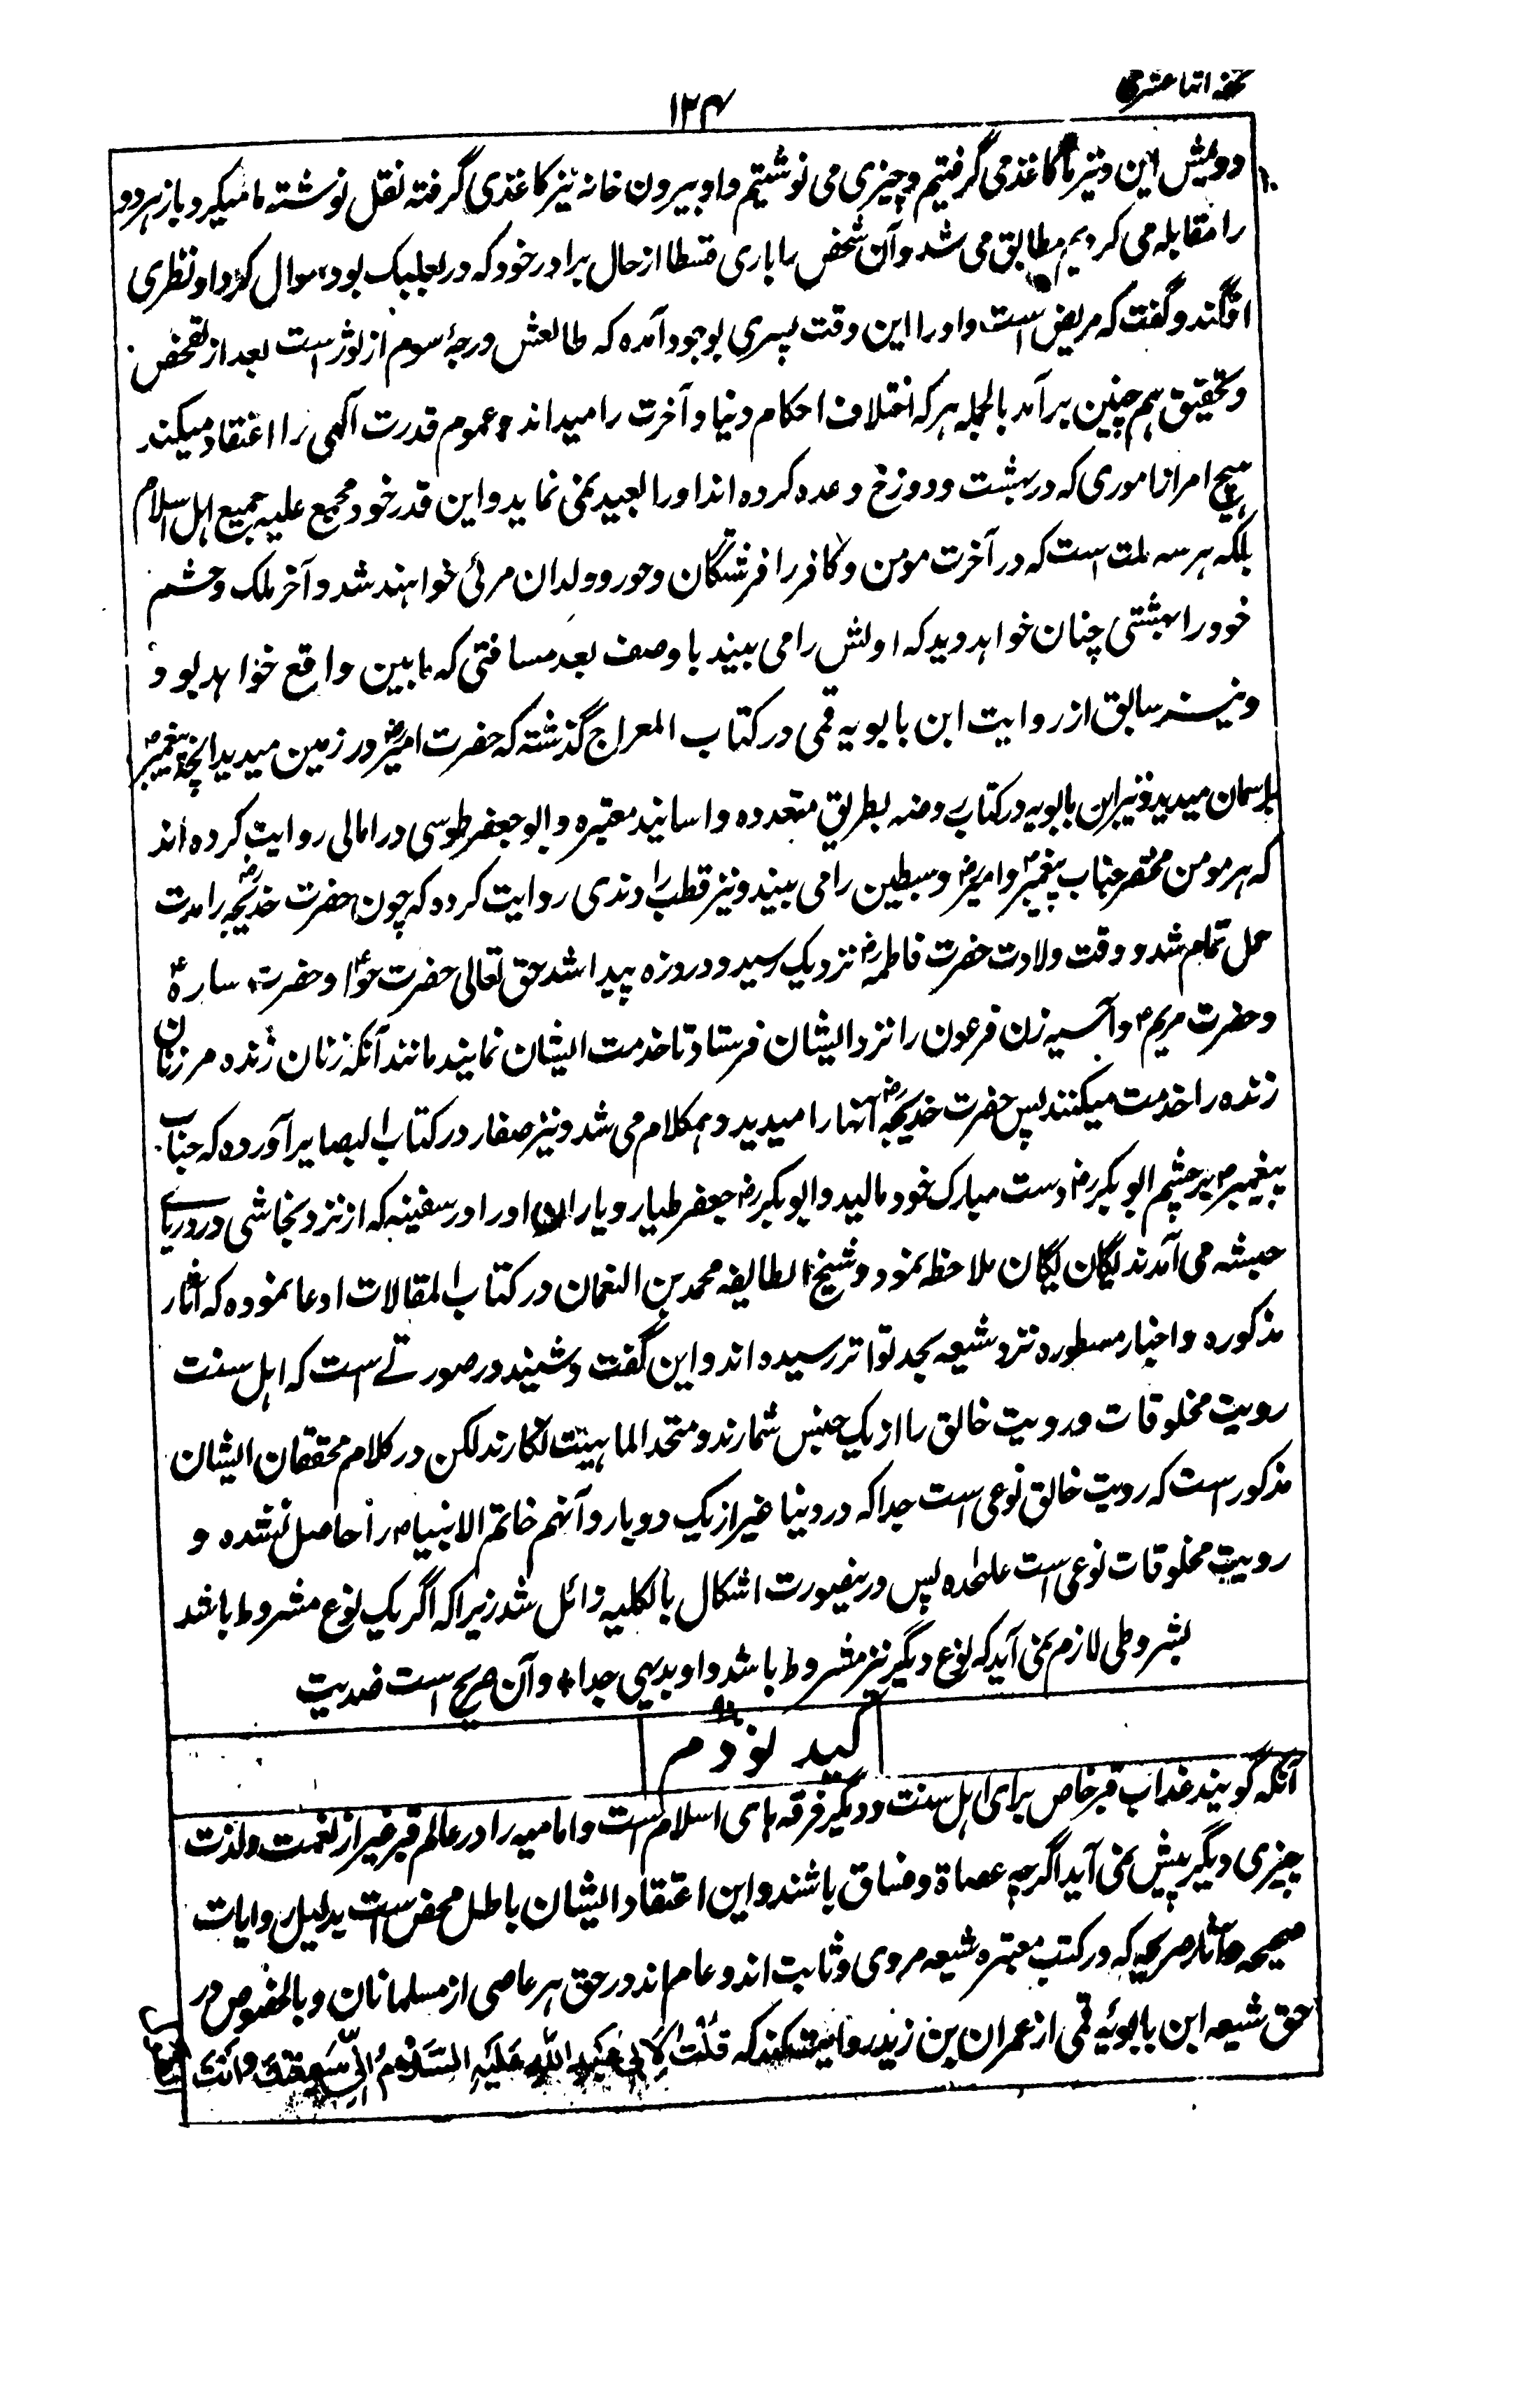 تحفه اثنا عشری
۱۲۴
دویش این و نیز ما کاغذ می گرفتیم و چیزی می نوشتیم و او بیرون خانه نیز کاغذی گرفته نقل نوشته ما میکرد و باز هر دو
را مقابله می کردیم مطابق می شد و آن شخص را باری قسطا از حال برادر خود که در بعلبک بود سوال کرد او نظری
افگند و گفت که مریض است و او را این وقت پسری بوجود آمده که طالعش درجهٔ سوم از ثور است بعد از تفحص
و تحقیق هم چنین برآمد بالجمله هر که اختلاف احکام دنیا و آخرت را میداند و عموم قدرت الهی را اعتقاد میکند
هیچ امر از اموری که در بهشت و دوزخ وعده کرده اند او را بعید نمی نماید و این قدر خود مجمع علیه جمیع اهل اسلام
بلکه هر سه ملت است که در آخرت مومن و کافر را فرشتگان و حور و ولدان مرئی خواهند شد و آخر ملک و حشم
خود را بهشتی چنان خواهد دید که اولش را می بیند با وصف بعد مسافتی که مابین واقع خواهد بود
و نیز سابق از روایت ابن بابویه قمی در کتاب المعراج گذشته که حضرت امیرؓ در زمین میدید انچه پیغمبرؐ
بر آسمان میدید و نیز ابن بابویه در کتاب روضه بطریق متعدده و اسانید معتبره و ابو جعفر طوسی در امالی روایت کرده اند
که هر مومن محتضر جناب پیغمبرؐ و امیرؓ و سبطین را می بیند و نیز قطب راوندی روایت کرده که چون حضرت خدیجهؓ را مدت
حمل تمام شد و وقت ولادت حضرت فاطمهؓ نزدیک رسید و دردزه پیدا شد حق تعالی حضرت حواؑ و حضرت سارهؑ
و حضرت مریمؑ و آسیه زن فرعون را نزد ایشان فرستاد تا خدمت ایشان نمایند مانند آنکه زنان زنده مر زنان
زنده را خدمت میکنند پس حضرت خدیجهؓ آنها را میدید و همکلام می شد و نیز صفار در کتاب البصایر آورده که جناب
پیغمبرؐ بر چشم ابوبکرؓ دست مبارک خود مالید و ابوبکرؓ جعفر طیار و یاران او را در سفینه که از نزد نجاشی در دریای
حبشه می آمدند یگان یگان ملاحظه نمود و شیخ الطایفه محمد بن النعمان در کتاب المقالات ادعا نموده که آثار
مذکوره و اخبار مسطوره نزد شیعه بحد تواتر رسیده اند و این گفت و شنید در صورتے است که اهل سنت
رویت مخلوقات و رویت خالق را از یک جنس شمارند و متحد الماهیت انگارند لکن در کلام محققان ایشان
مذکور است که رویت خالق نوعی است جدا که در دنیا غیر از یک دو بار و آنهم خاتم الانبیاؐ را حاصل نشده و
رویت مخلوقات نوعی است علحده پس درینصورت اشکال بالکلیه زائل شد زیرا که اگر یک نوع مشروط باشد
بشروطی لازم نمی آید که نوع دیگر نیز مشروط باشد و او بدیهی جدا و آن صریح است ضدیت
کید نودم
آنکه گویند عذاب قبر خاص برای اهل سنت و دیگر فرقه های اسلام است و امامیه را در عالم قبر غیر از نعمت و لذت
چیزی دیگر پیش نمی آید اگرچه عصاة و فساق باشند و این اعتقاد ایشان باطل محض است بدلیل روایات
صحیحه و آثار صریحه که در کتب معتبره شیعه مروی و ثابت اند و عام اند در حق هر عاصی از مسلمانان و بالخصوص در
حق شیعه ابن بابویه قمی از عمران بن زید روایت میکند که قُلْتُ لِاَبِی عَبْدِ اللّٰهِ عَلَیْهِ السَّلَامُ اِنِّی سَمِعْتُكَ وَاَنْتَ